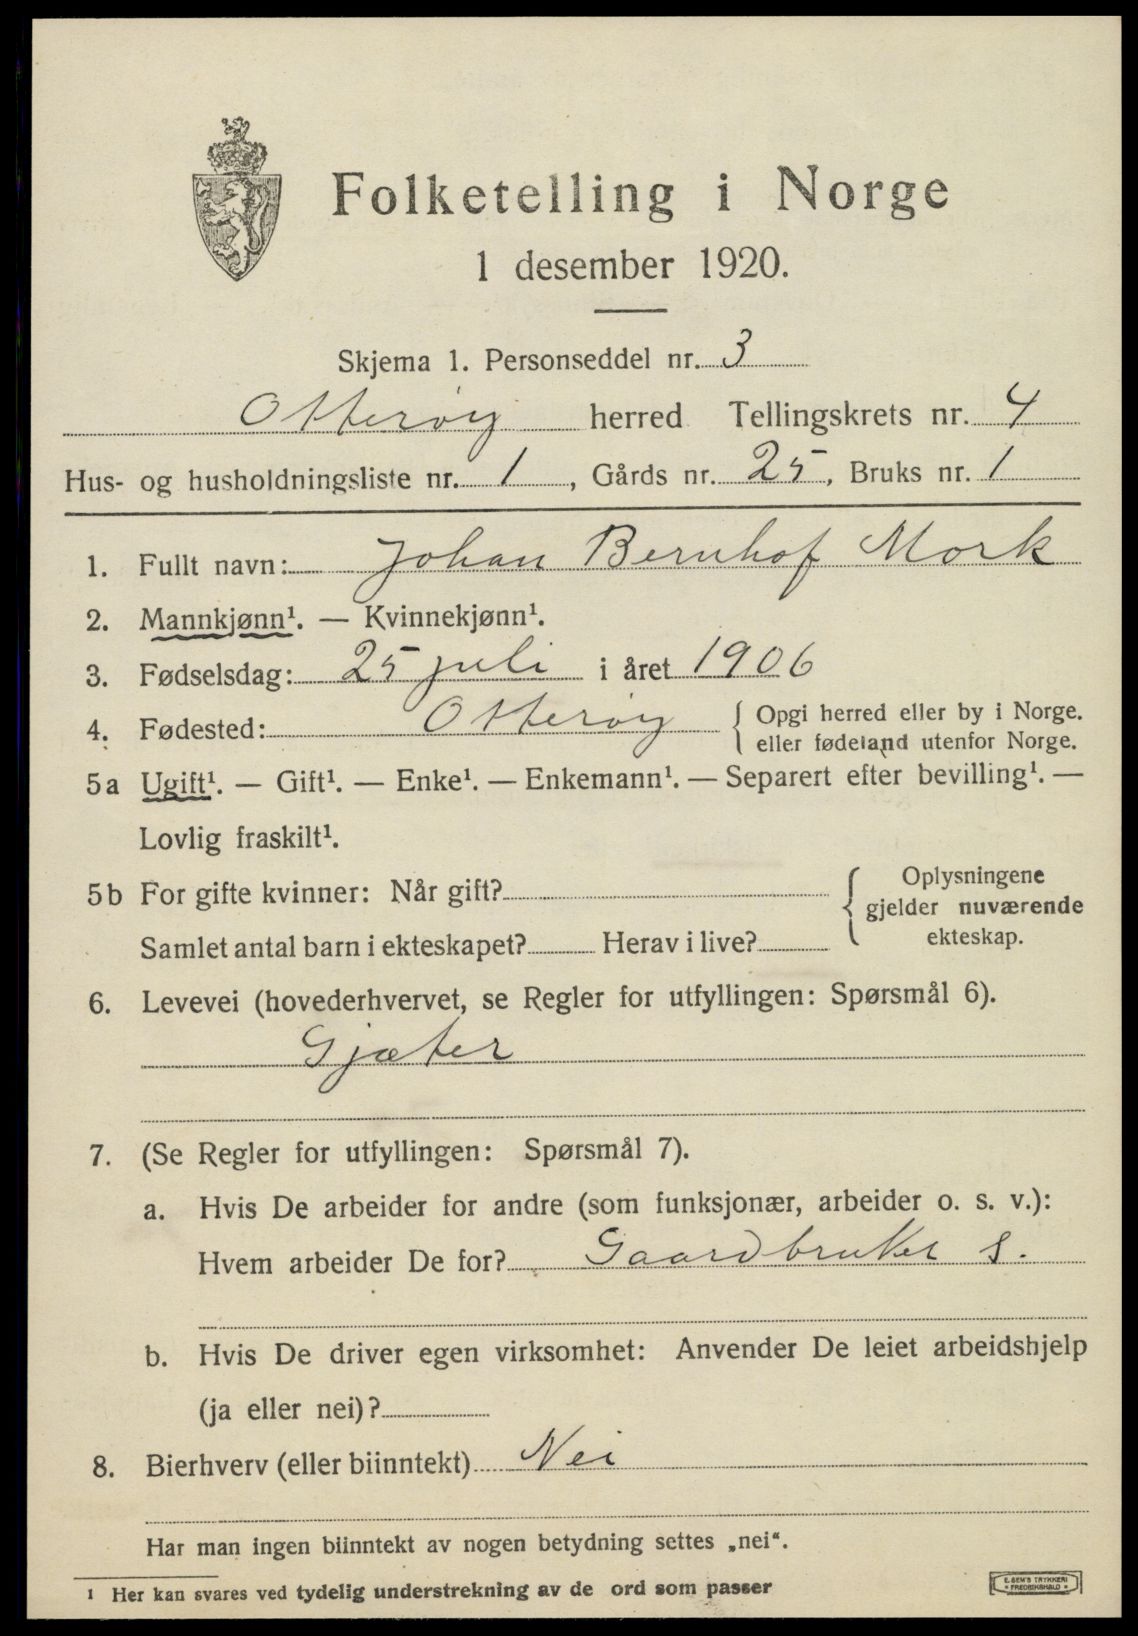 Folketelling i Norge
1 desember 1920.
Skjema 1. Personseddel nr. 3
Otterøy herred Tellingskrets nr. 4
Hus- og husholdningsliste nr. 1, Gårds nr. 25, Bruks nr. 1
1. Fullt navn: Johan Bernhof Mork
2. Mannkjønn¹. — Kvinnekjønn¹.
3. Fødselsdag: 25 juli i året 1906
4. Fødested: Otterøy { Opgi herred eller by i Norge.
eller fødeland utenfor Norge.
5a Ugift¹. — Gift¹. — Enke¹. — Enkemann¹. — Separert efter bevilling¹. —
Lovlig fraskilt¹.
5b For gifte kvinner: Når gift?
Samlet antal barn i ekteskapet? Herav i live?
{ Oplysningene
gjelder nuværende
ekteskap.
6. Levevei (hovederhvervet, se Regler for utfyllingen: Spørsmål 6).
Gjæter
7. (Se Regler for utfyllingen: Spørsmål 7).
a. Hvis De arbeider for andre (som funksjonær, arbeider o. s. v.):
Hvem arbeider De for? Gaardbruker s.
b. Hvis De driver egen virksomhet: Anvender De leiet arbeidshjelp
(ja eller nei)?
8. Bierhverv (eller biinntekt) Nei
Har man ingen biinntekt av nogen betydning settes „nei“.
¹ Her kan svares ved tydelig understrekning av de ord som passer
E. SEM'S TRYKKERI
* FREDRIKSHALD *